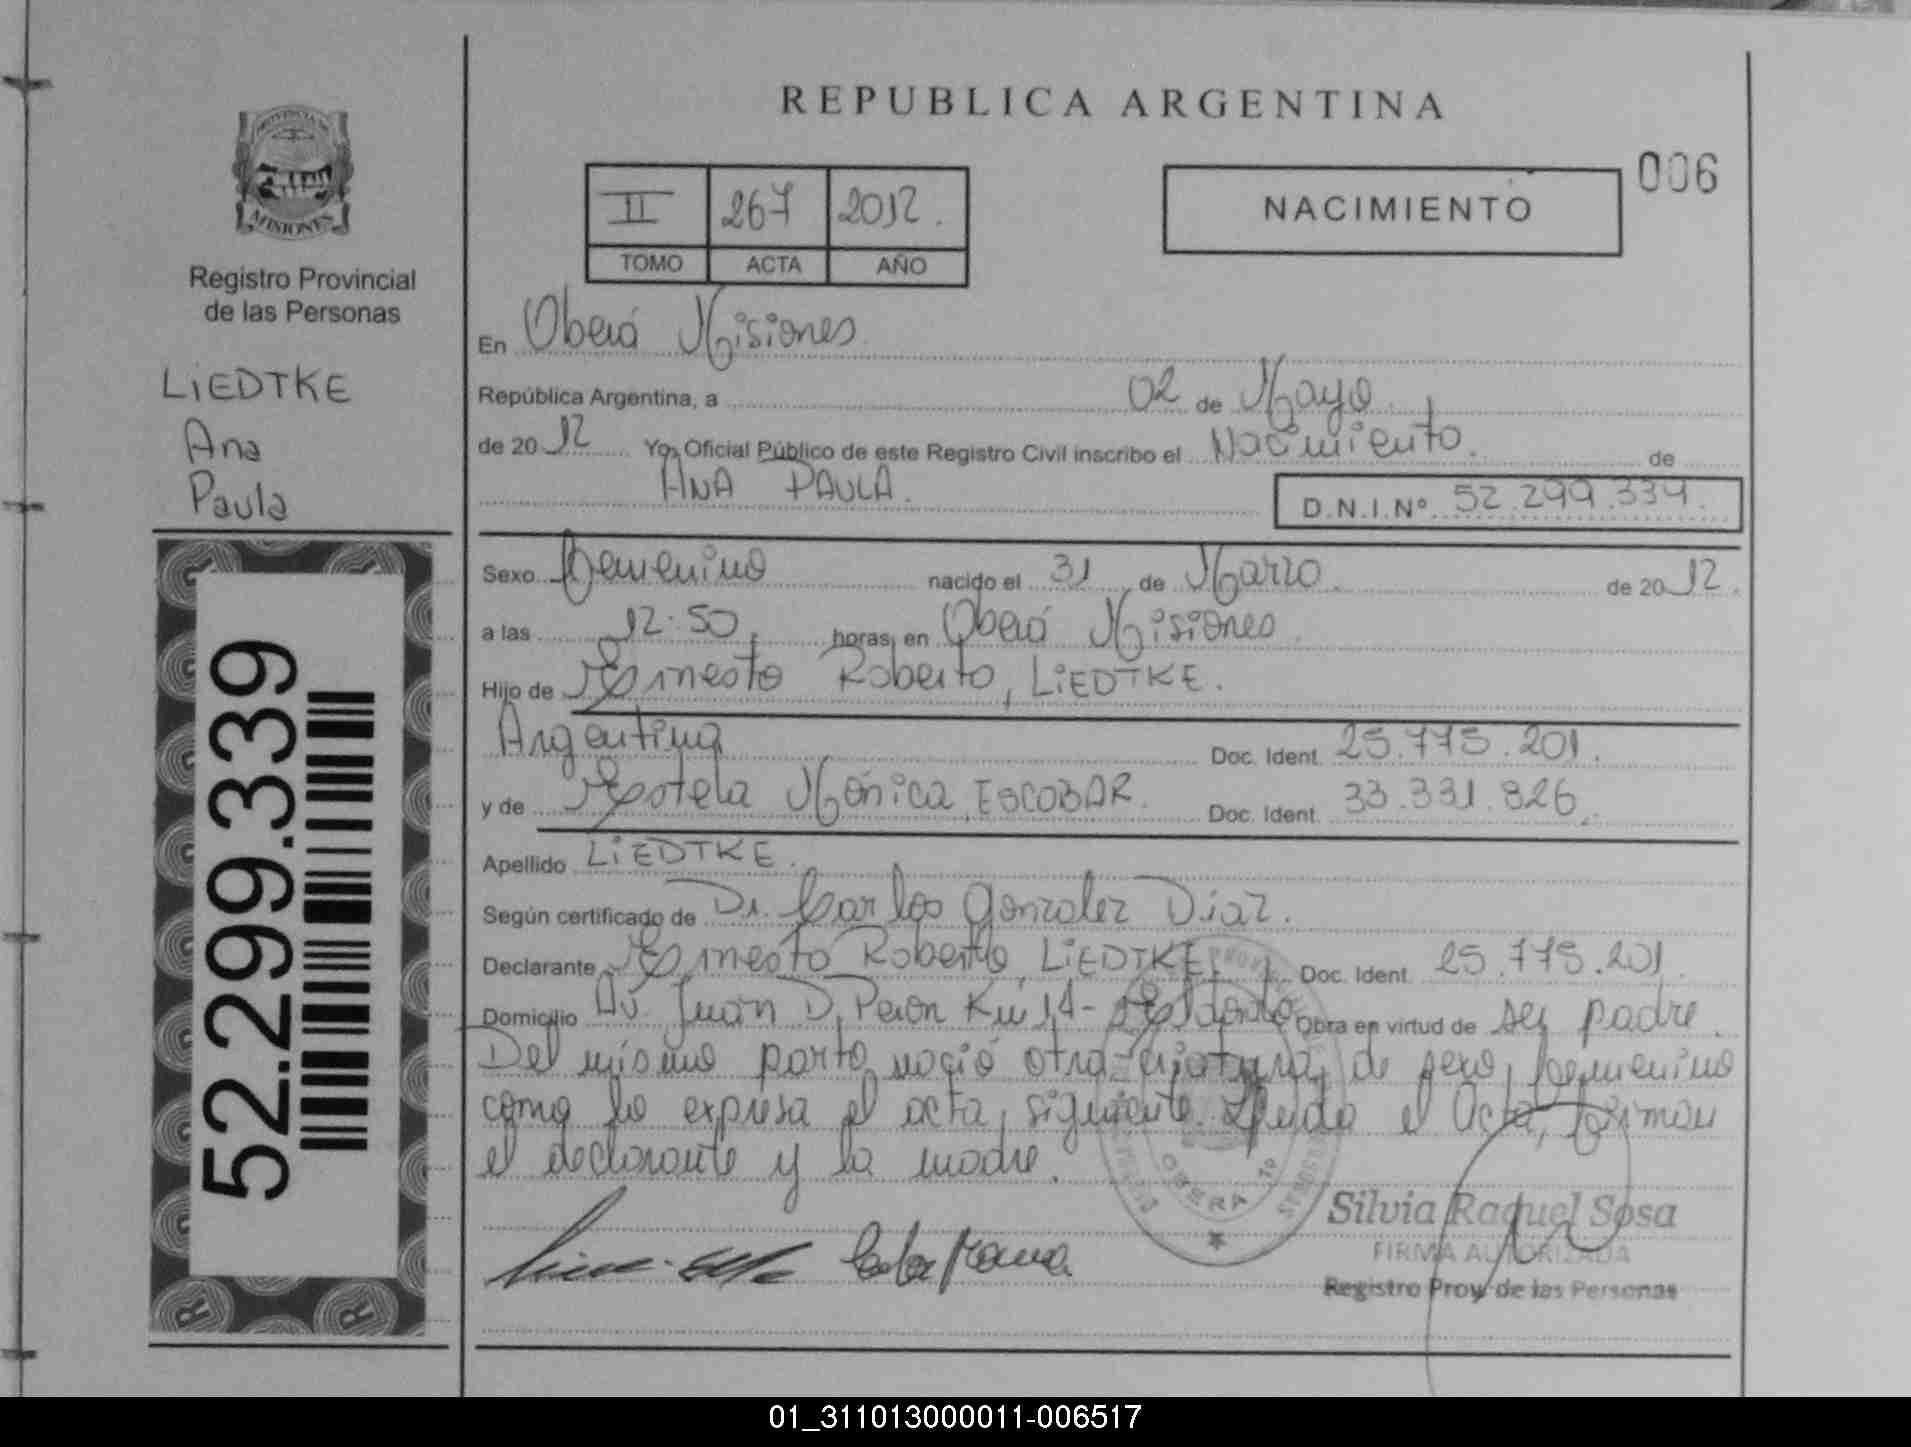 REPUBLICA ARGENTINA
006
II 267 2012.
TOMO ACTA AÑO
NACIMIENTO
MISIONES
Registro Provincial
de las Personas
LiEDTKE
Ana
Paula
52.299.339
En Oberá Misiones
República Argentina, a 02 de Mayo
de 2012 Yo, Oficial Público de este Registro Civil inscribo el Nacimiento. de
ANA PAULA.
D.N.I.Nº 52.299.339.
Sexo Femenino nacido el 31 de Marzo de 2012.
a las 12:50 horas, en Oberá Misiones
Hijo de Ernesto Roberto, LiEDTKE.
Argentina Doc. Ident. 25.775.201.
y de Estela Mónica, ESCOBAR. Doc. Ident. 33.331.326.
Apellido LiEDTKE.
Según certificado de Dr. Carlos Gonzalez Diaz.
Declarante Ernesto Roberto, LiEDTKE, Doc. Ident. 25.775.201
Domicilio Av. Juan D. Perón Km 14- Eldorado Obra en virtud de ser padre.
Del mismo parto nació otra criatura, de sexo, femenino
como lo expresa el acta, siguiente. Leída el Acta, firman
el declarante y la madre.
OBERA
Silvia Raquel Sosa
FIRMA AUTORIZADA
Registro Prov. de las Personas
01_311013000011-006517